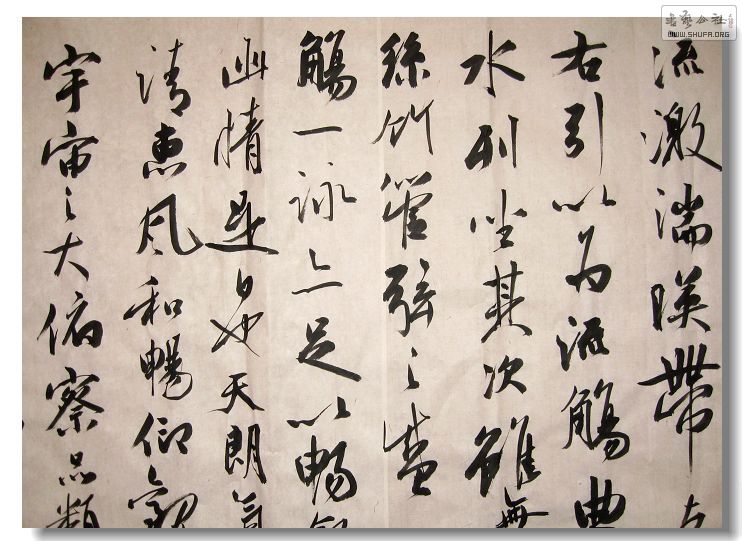 流激湍暎帶左
右引以為流觴曲
水列坐其次雖無
絲竹管弦之盛
觴一詠亦足以暢敘
幽情是日也天朗氣
清惠風和暢仰觀
宇宙之大俯察品類
书艺公社
WWW.SHUFA.ORG